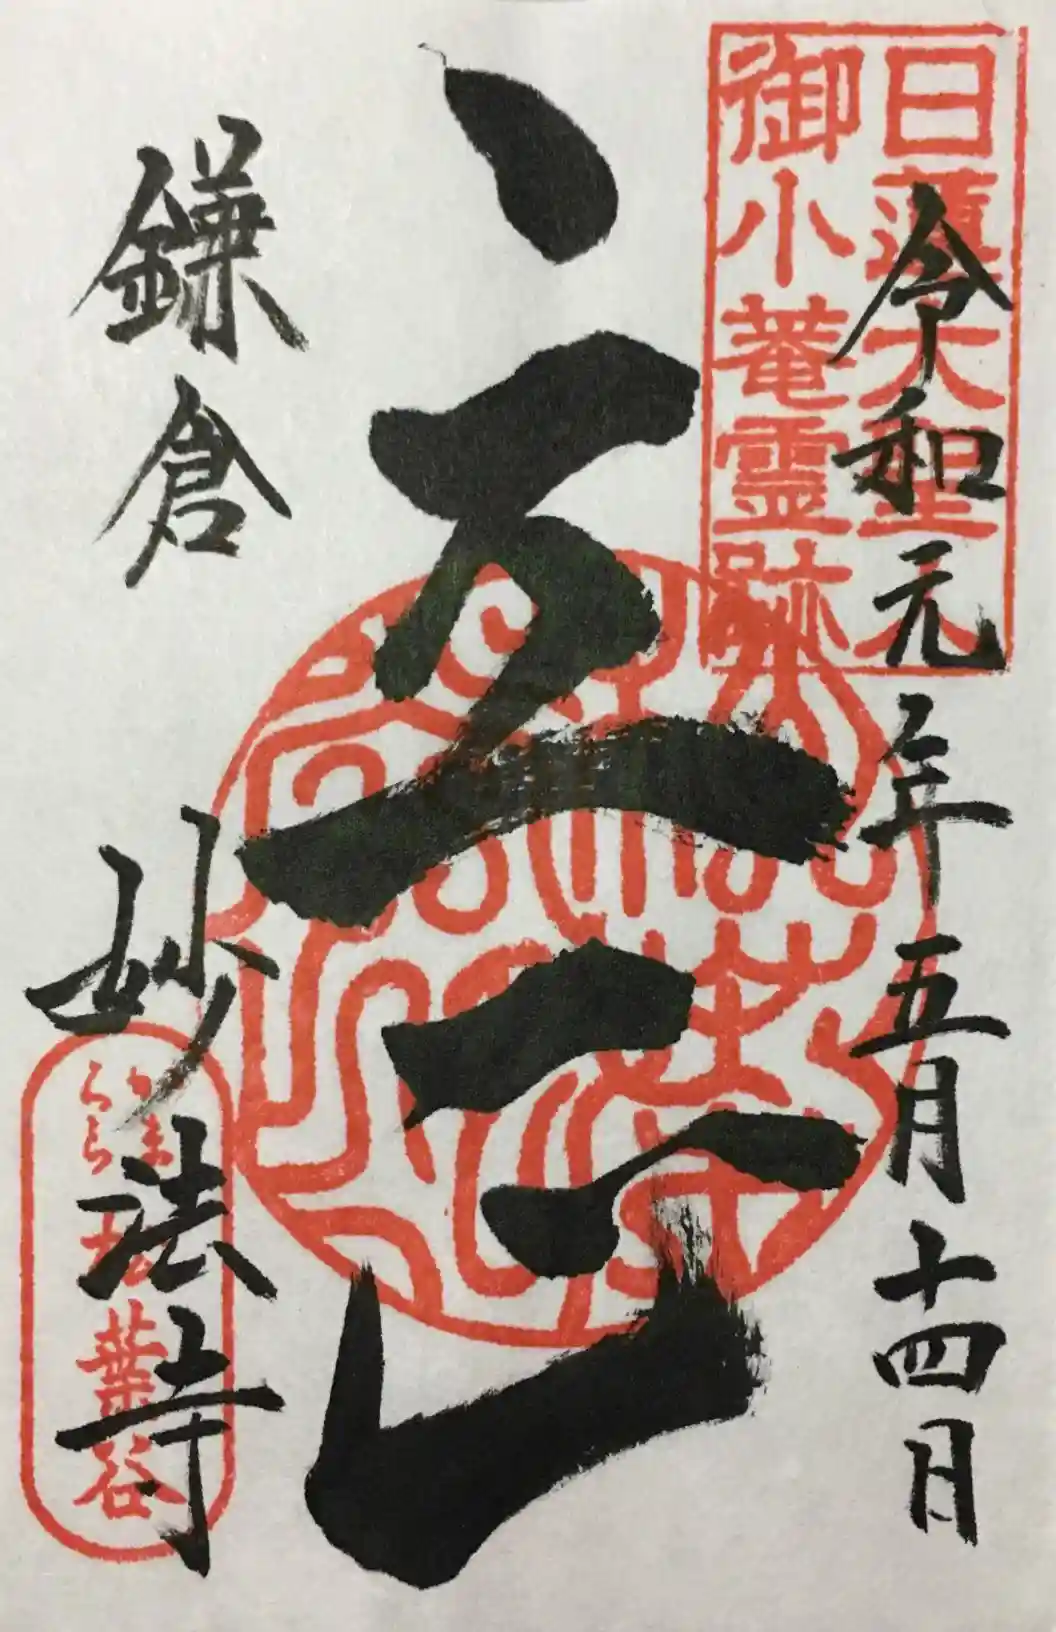 日蓮大聖人
御小菴霊跡
令和元年五月十四日
鎌倉 妙法寺
かまくら
松葉谷